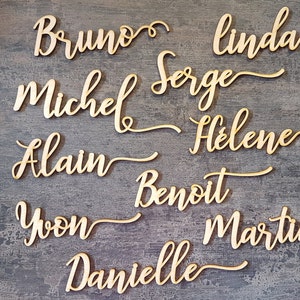 Bruno
linda
Serge
Michel
Hélene
Alain
Benoit
Yvon
Danielle